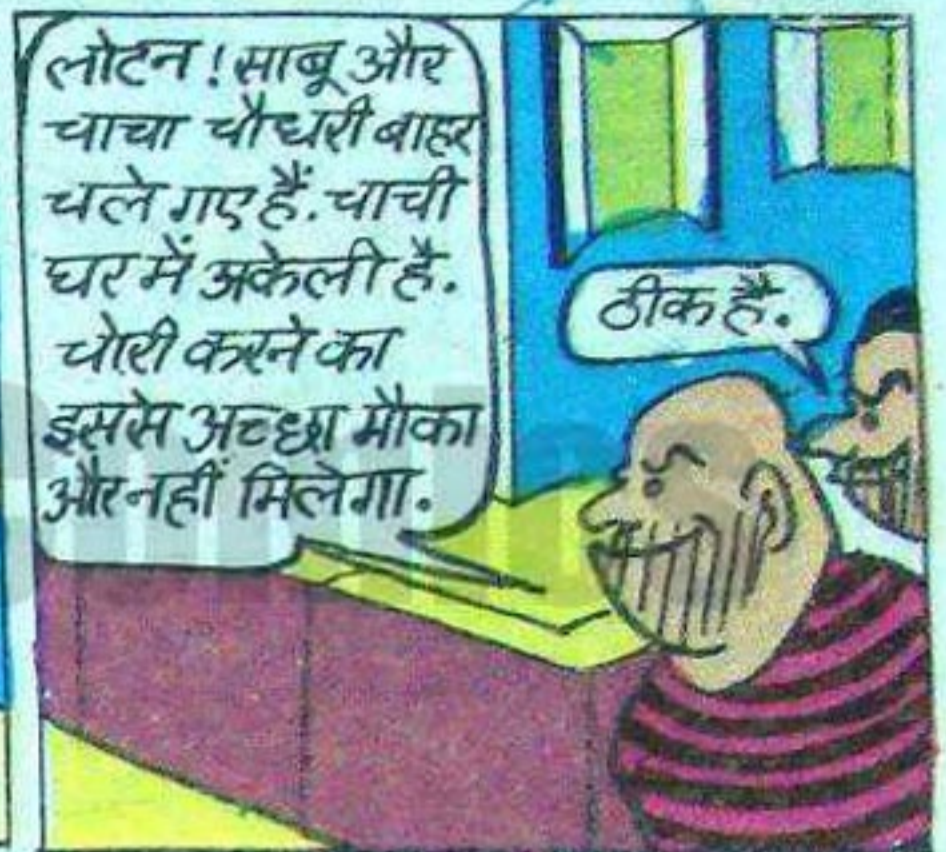 लोटन! साबू और
चाचा चौधरी बाहर
चले गए हैं. चाची
घर में अकेली है.
चोरी करने का
इससे अच्छा मौका
और नहीं मिलेगा.
ठीक है.